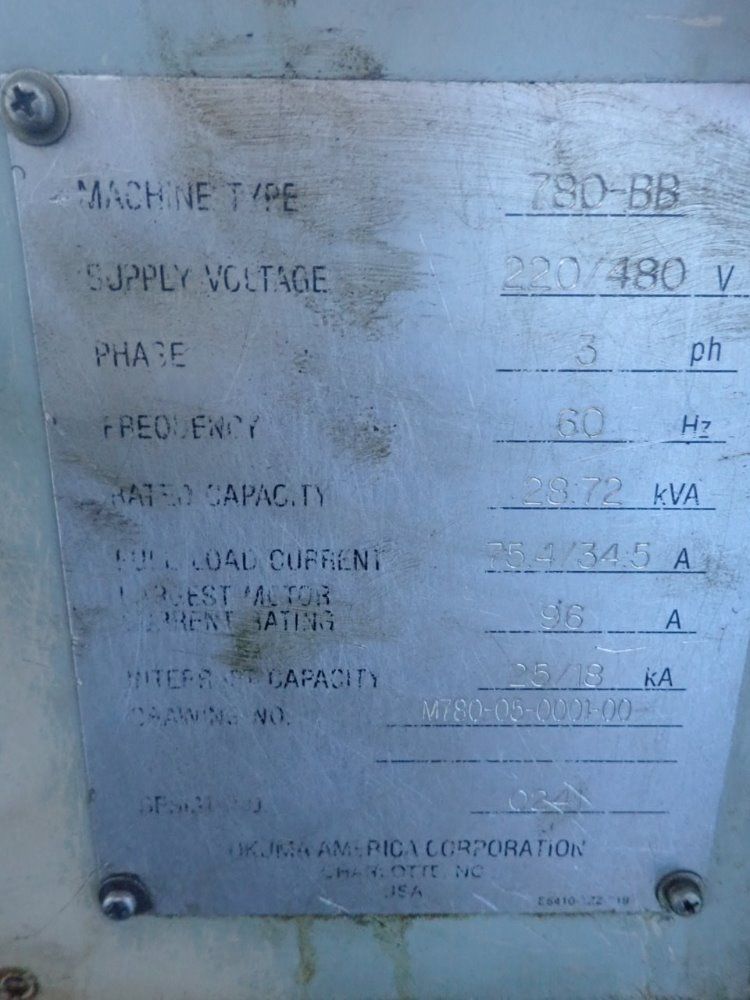 MACHINE TYPE 780-BB
SUPPLY VOLTAGE 220/480 V
PHASE 3 ph
FREQUENCY 60 Hz
RATED CAPACITY 28.72 kVA
FULL LOAD CURRENT 75.4/34.5 A
LARGEST MOTOR
CURRENT RATING 96 A
INTERRUPT CAPACITY 25/18 kA
DRAWING NO. M780-05-0001-00
SERIAL NO.
OKUMA AMERICA CORPORATION
CHARLOTTE, NC
USA